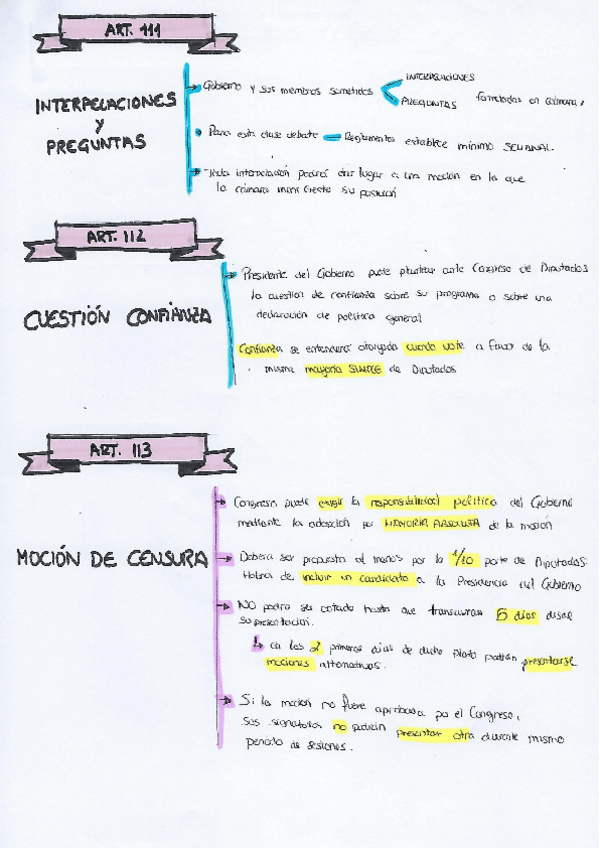 ART. 111
INTERPELACIONES
Y
PREGUNTAS
Gobierno y sus miembros sometidos
INTERPELACIONES
PREGUNTAS formuladas en cámara.
Para esta clase debate Reglamento establece mínimo SEMANAL.
Toda interpelación podrá dar lugar a una moción en la que
la cámara manifieste su posición
ART. 112
CUESTIÓN CONFIANZA
Presidente del Gobierno puede plantear ante Congreso de Diputados
la cuestión de confianza sobre su programa o sobre una
declaración de política general
Confianza se entenderá otorgada cuando vote a favor de la
misma mayoría SIMPLE de Diputados
ART. 113
MOCIÓN DE CENSURA
Congreso puede exigir la responsabilidad política del Gobierno
mediante la adopción por MAYORIA ABSOLUTA de la moción
Deberá ser propuesta al menos por la 1/10 parte de Diputados.
Habrá de incluir un candidato a la Presidencia del Gobierno
NO podrá ser votada hasta que transcurran 5 días desde
su presentación.
en los 2 primeros días de dicho plazo podrán presentarse
mociones alternativas.
Si la moción no fuere aprobada por el Congreso,
sus signatarios no podrán presentar otra durante mismo
periodo de sesiones.